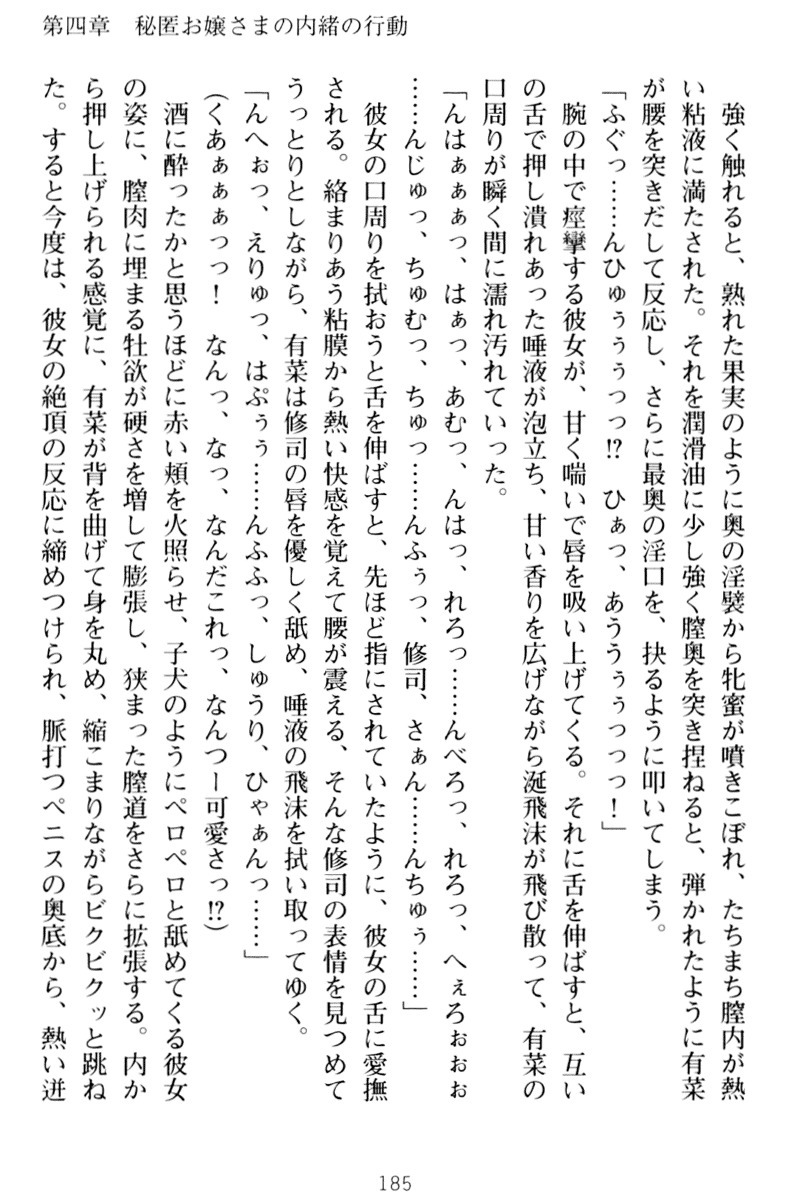 第四章　秘匿お嬢さまの内緒の行動
　強く触れると、熟れた果実のように奥の淫襞から牝蜜が噴きこぼれ、たちまち膣内が熱
い粘液に満たされた。それを潤滑油に少し強く膣奥を突き捏ねると、弾かれたように有菜
が腰を突きだして反応し、さらに最奥の淫口を、抉るように叩いてしまう。
「ふぐっ……んひゅぅぅぅっっ!?　ひぁっ、あううぅぅっっっ！」
　腕の中で痙攣する彼女が、甘く喘いで唇を吸い上げてくる。それに舌を伸ばすと、互い
の舌で押し潰れあった唾液が泡立ち、甘い香りを広げながら涎飛沫が飛び散って、有菜の
口周りが瞬く間に濡れ汚れていった。
「んはぁぁぁっ、はぁっ、あむっ、んはっ、れろっ……んべろっ、れろっ、へぇろぉぉぉ
……んじゅっ、ちゅむっ、ちゅっ……んふぅっ、修司、さぁん……んちゅぅ……」
　彼女の口周りを拭おうと舌を伸ばすと、先ほど指にされていたように、彼女の舌に愛撫
される。絡まりあう粘膜から熱い快感を覚えて腰が震える、そんな修司の表情を見つめて
うっとりとしながら、有菜は修司の唇を優しく舐め、唾液の飛沫を拭い取ってゆく。
「んへぉっ、えりゅっ、はぷぅぅ……んふふっ、しゅうり、ひゃぁんっ……」
（くあぁぁぁっっ！　なんっ、なっ、なんだこれっ、なんつー可愛さっ!?）
　酒に酔ったかと思うほどに赤い頬を火照らせ、子犬のようにペロペロと舐めてくる彼女
の姿に、膣肉に埋まる牡欲が硬さを増して膨張し、狭まった膣道をさらに拡張する。内か
ら押し上げられる感覚に、有菜が背を曲げて身を丸め、縮こまりながらビクビクッと跳ね
た。すると今度は、彼女の絶頂の反応に締めつけられ、脈打つペニスの奥底から、熱い迸
185